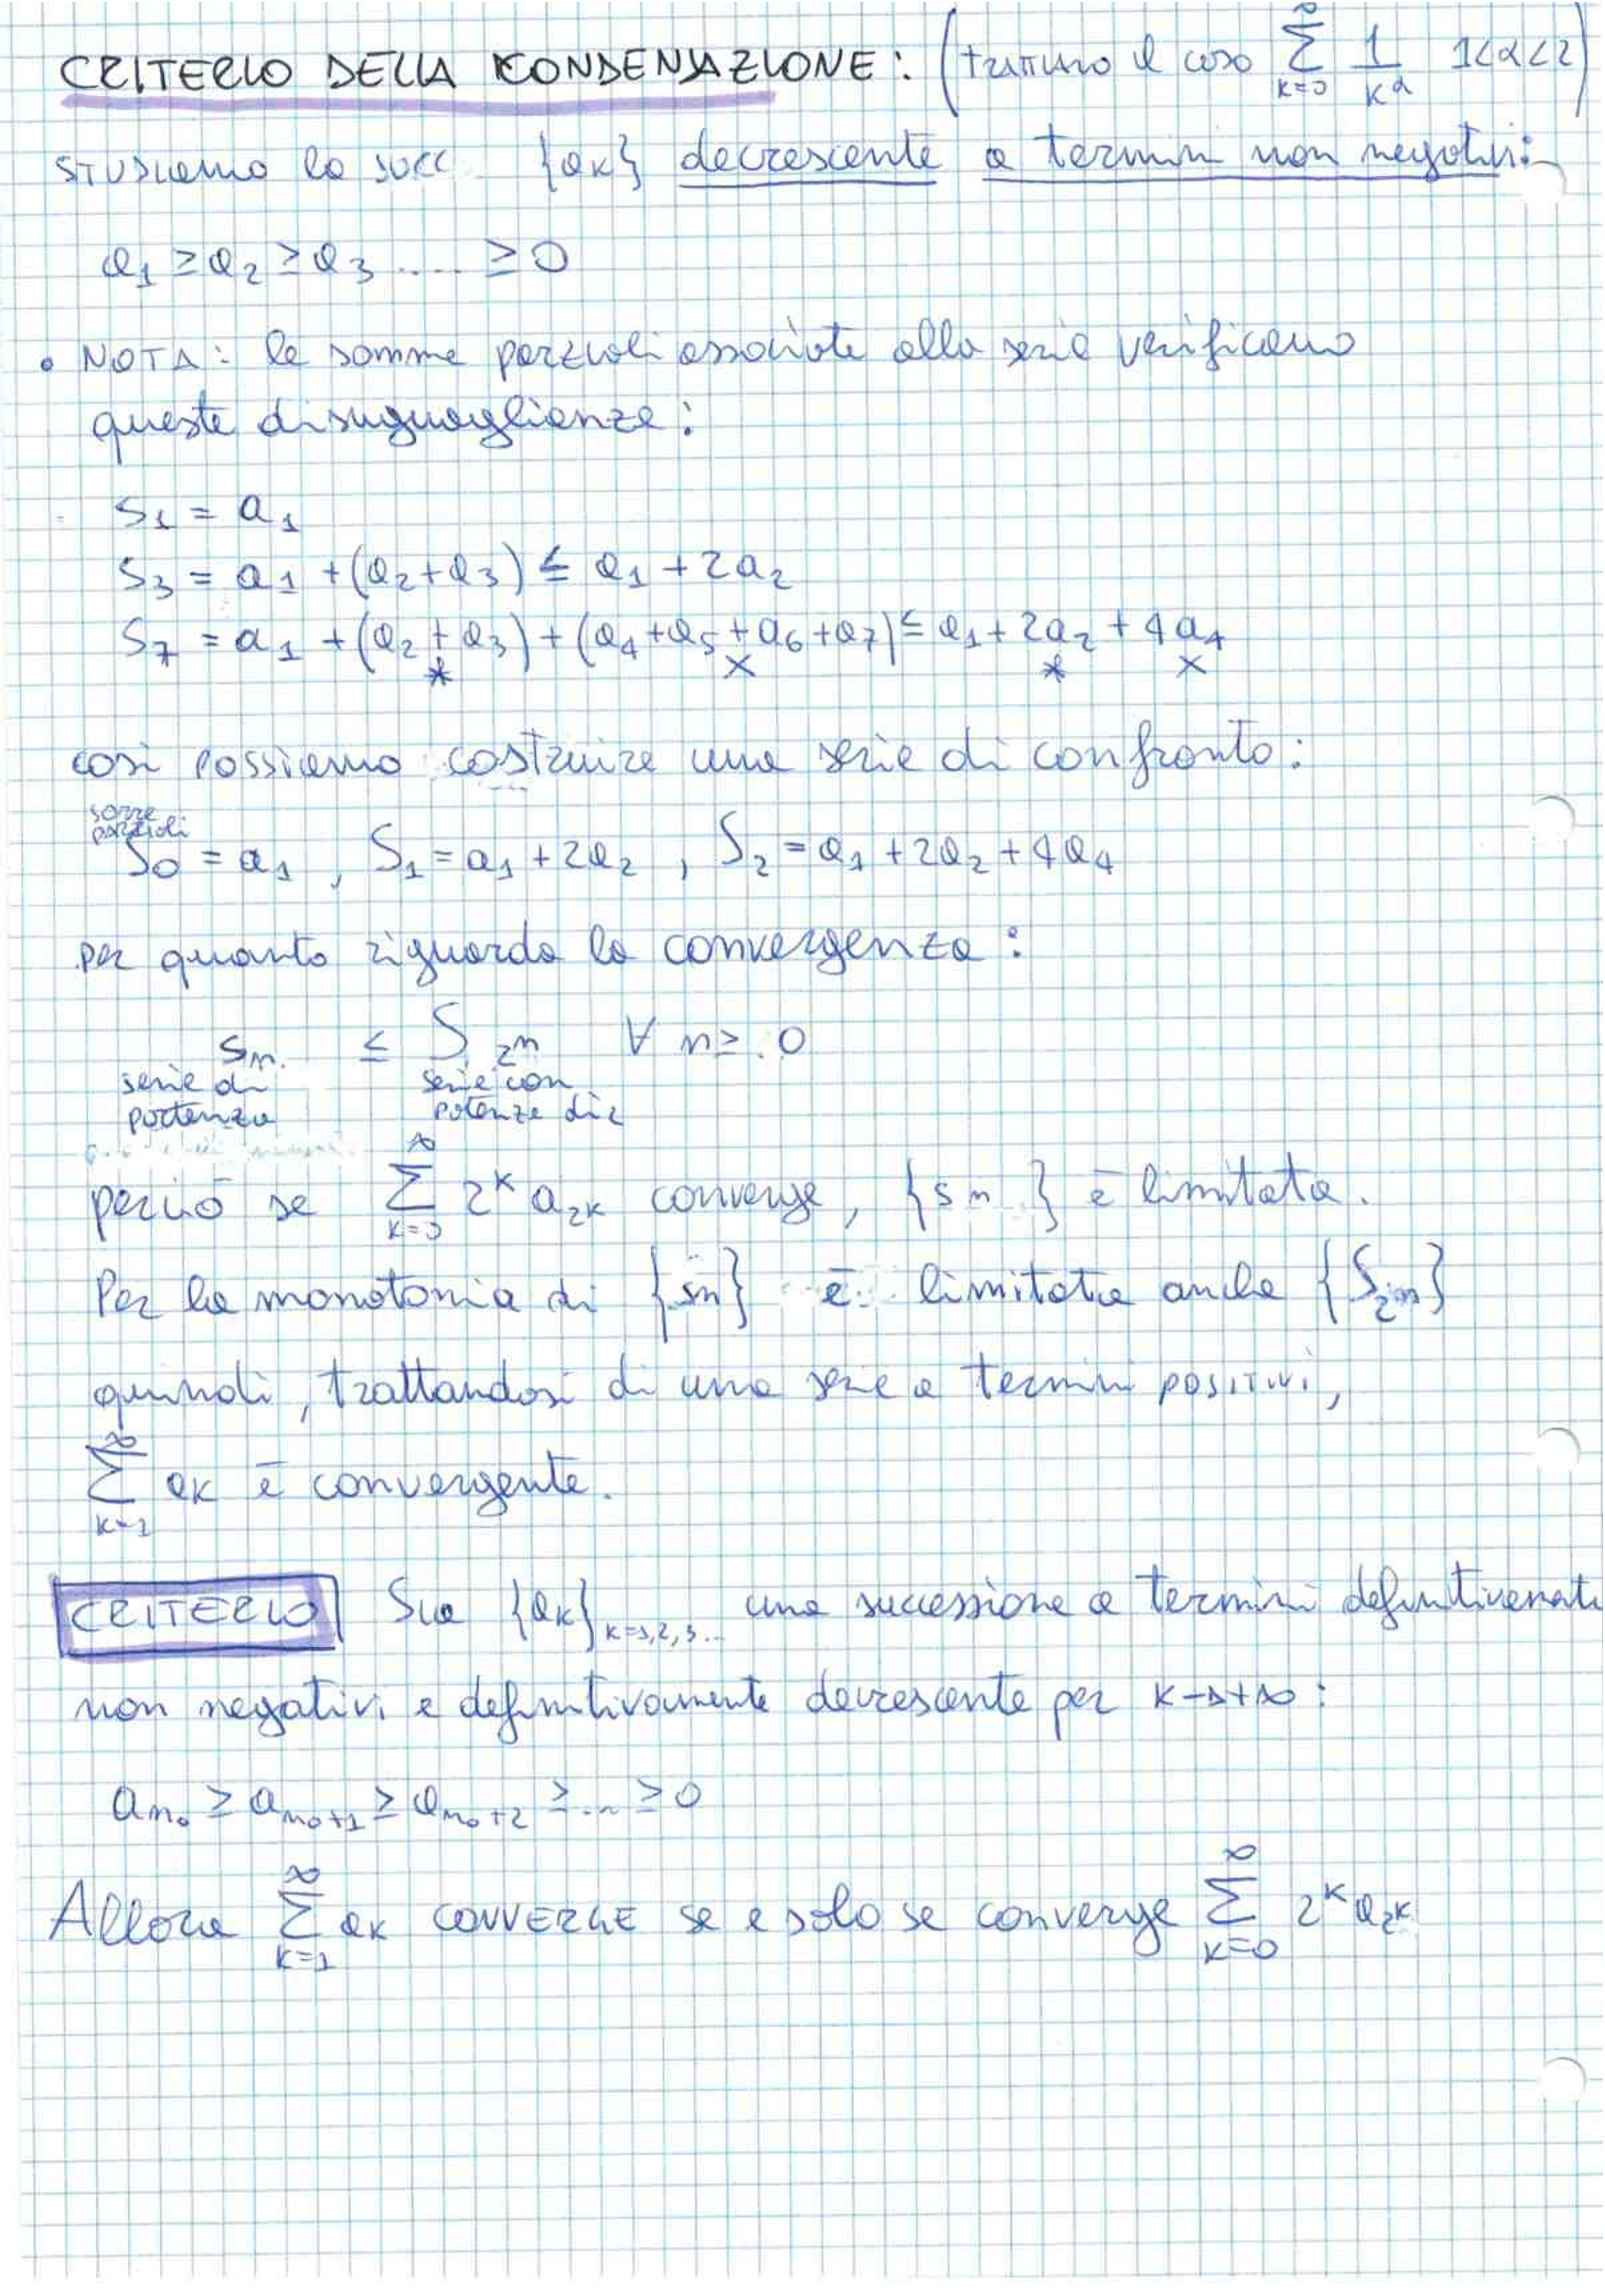 CRITERIO DELLA CONDENSAZIONE: (trattiamo il caso ∑_{k=0}^{∞} 1/k^α 1<α<2)
STUDIAMO la succ. {a_k} decrescente a termini non negativi:
a_1 ≥ a_2 ≥ a_3 .... ≥ 0
• NOTA: le somme parziali associate alla serie verificano
queste disuguaglianze:
S_1 = a_1
S_3 = a_1 + (a_2 + a_3) ≤ a_1 + 2a_2
S_7 = a_1 + (a_2 + a_3) + (a_4 + a_5 + a_6 + a_7) ≤ a_1 + 2a_2 + 4a_4
* × * ×
così possiamo costruire una serie di confronto:
somme
parziali
S_0 = a_1 , S_1 = a_1 + 2a_2 , S_2 = a_1 + 2a_2 + 4a_4
per quanto riguarda la convergenza:
s_n. ≤ S_{2^n} ∀ n ≥ 0
serie di serie con
partenza potenze di 2
perciò se ∑_{k=0}^{∞} 2^k a_{2k} converge, {s_n} è limitata.
Per la monotonia di {s_n} è limitata anche {S_{2^n}}
quindi, trattandosi di una serie a termini positivi,
∑_{k=1}^{∞} a_k è convergente.
CRITERIO Sia {a_k}_{k=1,2,3...} una successione a termini definitivamente
non negativi e definitivamente decrescente per k→+∞:
a_{n_0} ≥ a_{n_0+1} ≥ a_{n_0+2} ≥ ... ≥ 0
Allora ∑_{k=1}^{∞} a_k CONVERGE se e solo se converge ∑_{k=0}^{∞} 2^k a_{2^k}